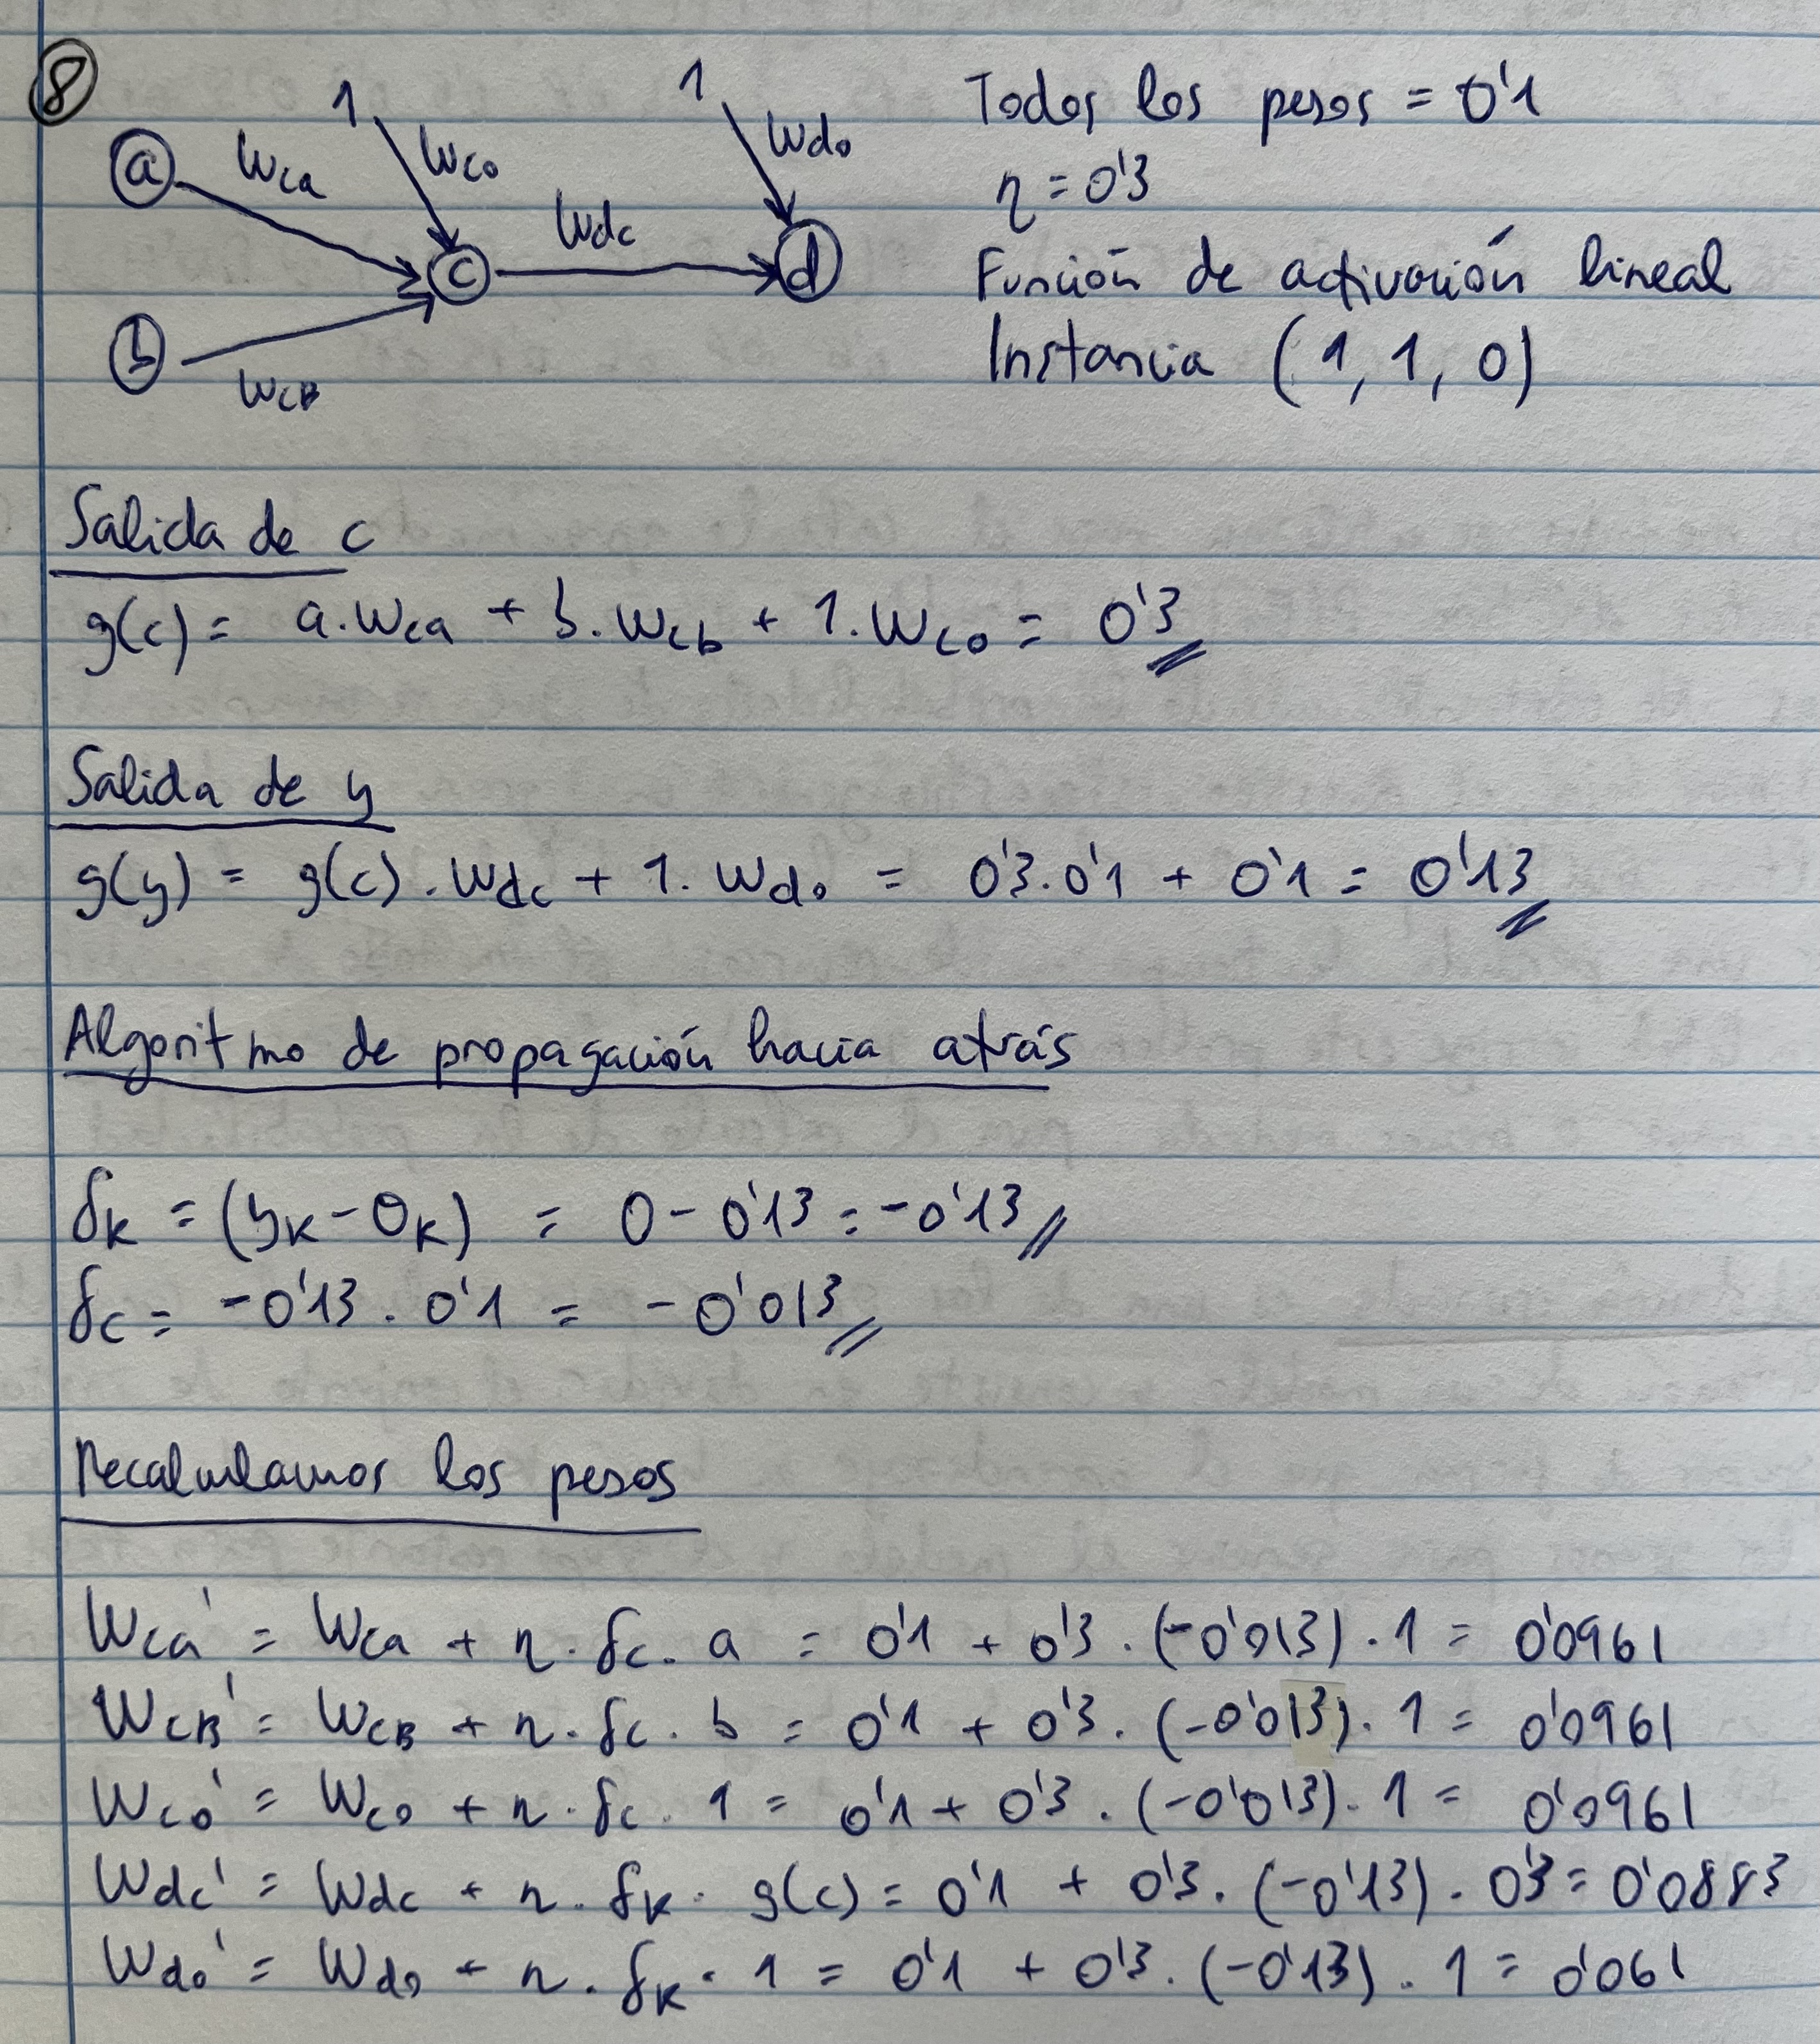 8
1 1 Todos los pesos = 0'1
a Wca Wco Wdo η = 0'3
c Wdc d Función de activación lineal
b WcB Instancia (1, 1, 0)
Salida de c
g(c) = a.Wca + b.Wcb + 1.Wco = 0'3
Salida de y
g(y) = g(c).Wdc + 1.Wdo = 0'3.0'1 + 0'1 = 0'13
Algoritmo de propagación hacia atrás
δK = (yK - OK) = 0 - 0'13 = -0'13
δc = -0'13 . 0'1 = -0'013
Recalculamos los pesos
Wca' = Wca + η . δc . a = 0'1 + 0'3 . (-0'013) . 1 = 0'0961
WcB' = WcB + η . δc . b = 0'1 + 0'3 . (-0'013) . 1 = 0'0961
Wco' = Wco + η . δc . 1 = 0'1 + 0'3 . (-0'013) . 1 = 0'0961
Wdc' = Wdc + η . δK . g(c) = 0'1 + 0'3 . (-0'13) . 0'3 = 0'0883
Wdo' = Wdo + η . δK . 1 = 0'1 + 0'3 . (-0'13) . 1 = 0'061